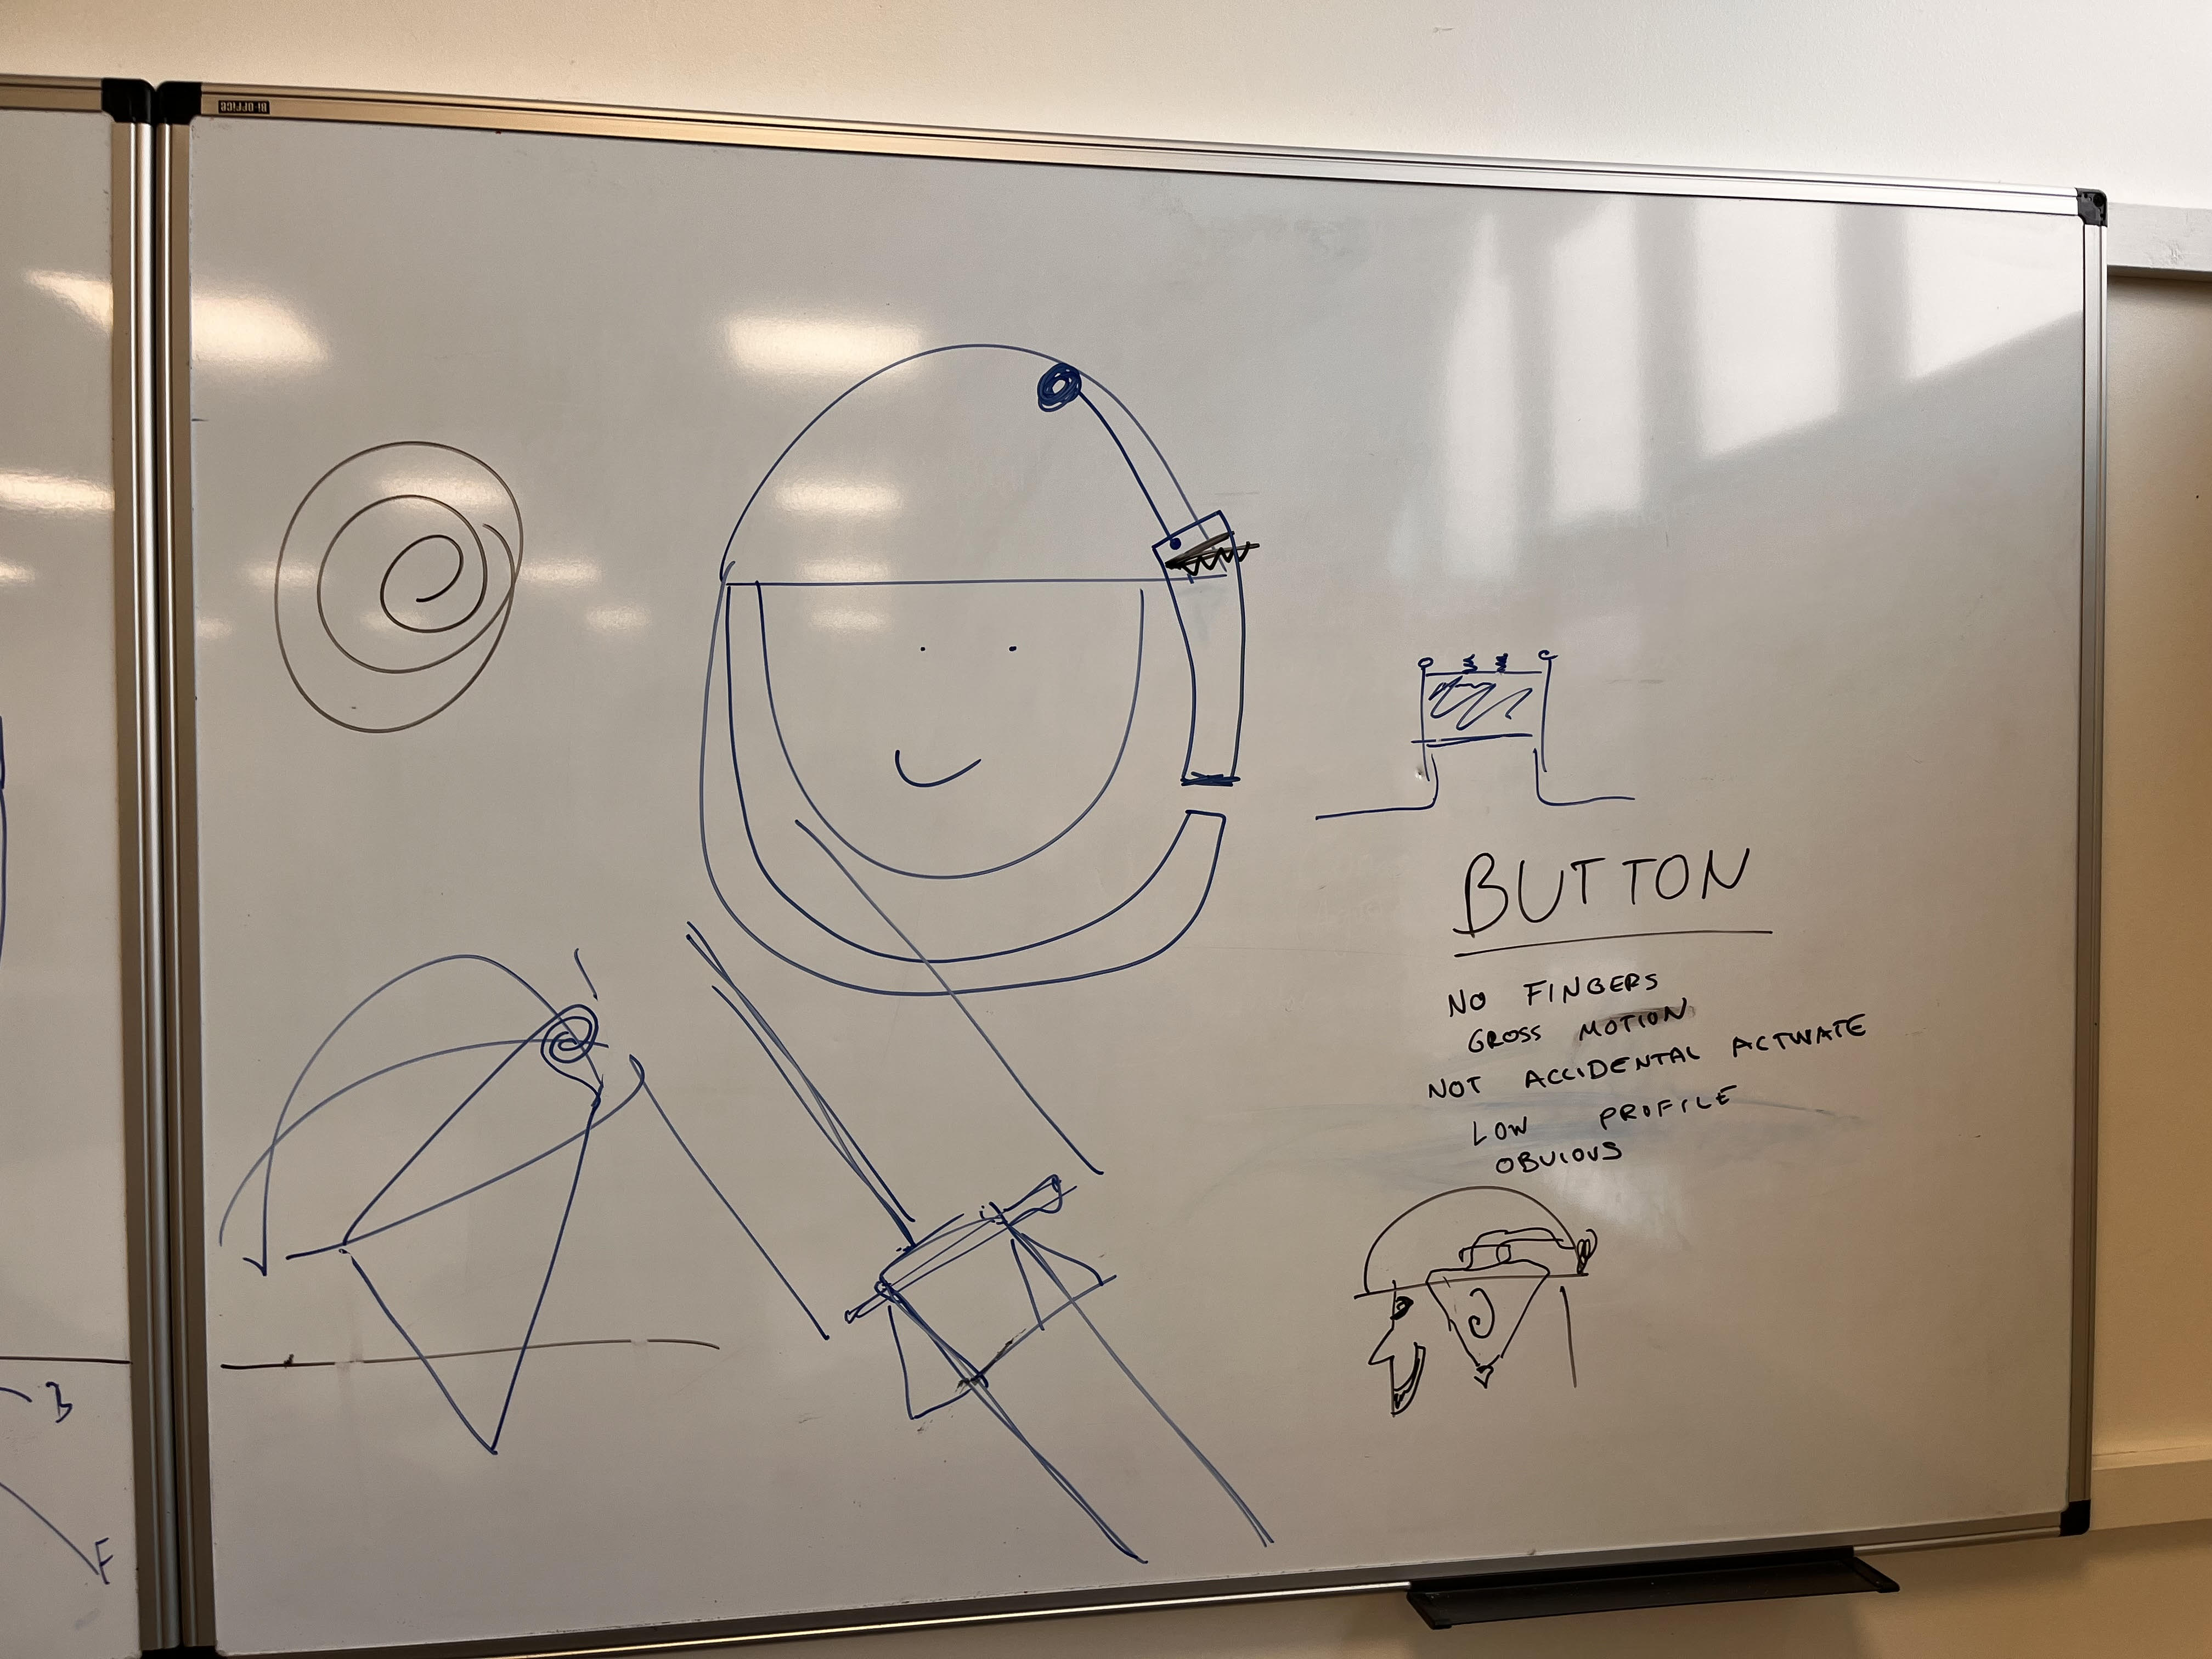 BI-OFFICE
BUTTON
NO FINGERS
GROSS MOTION
NOT ACCIDENTAL ACTIVATE
LOW PROFILE
OBVIOUS
B
F